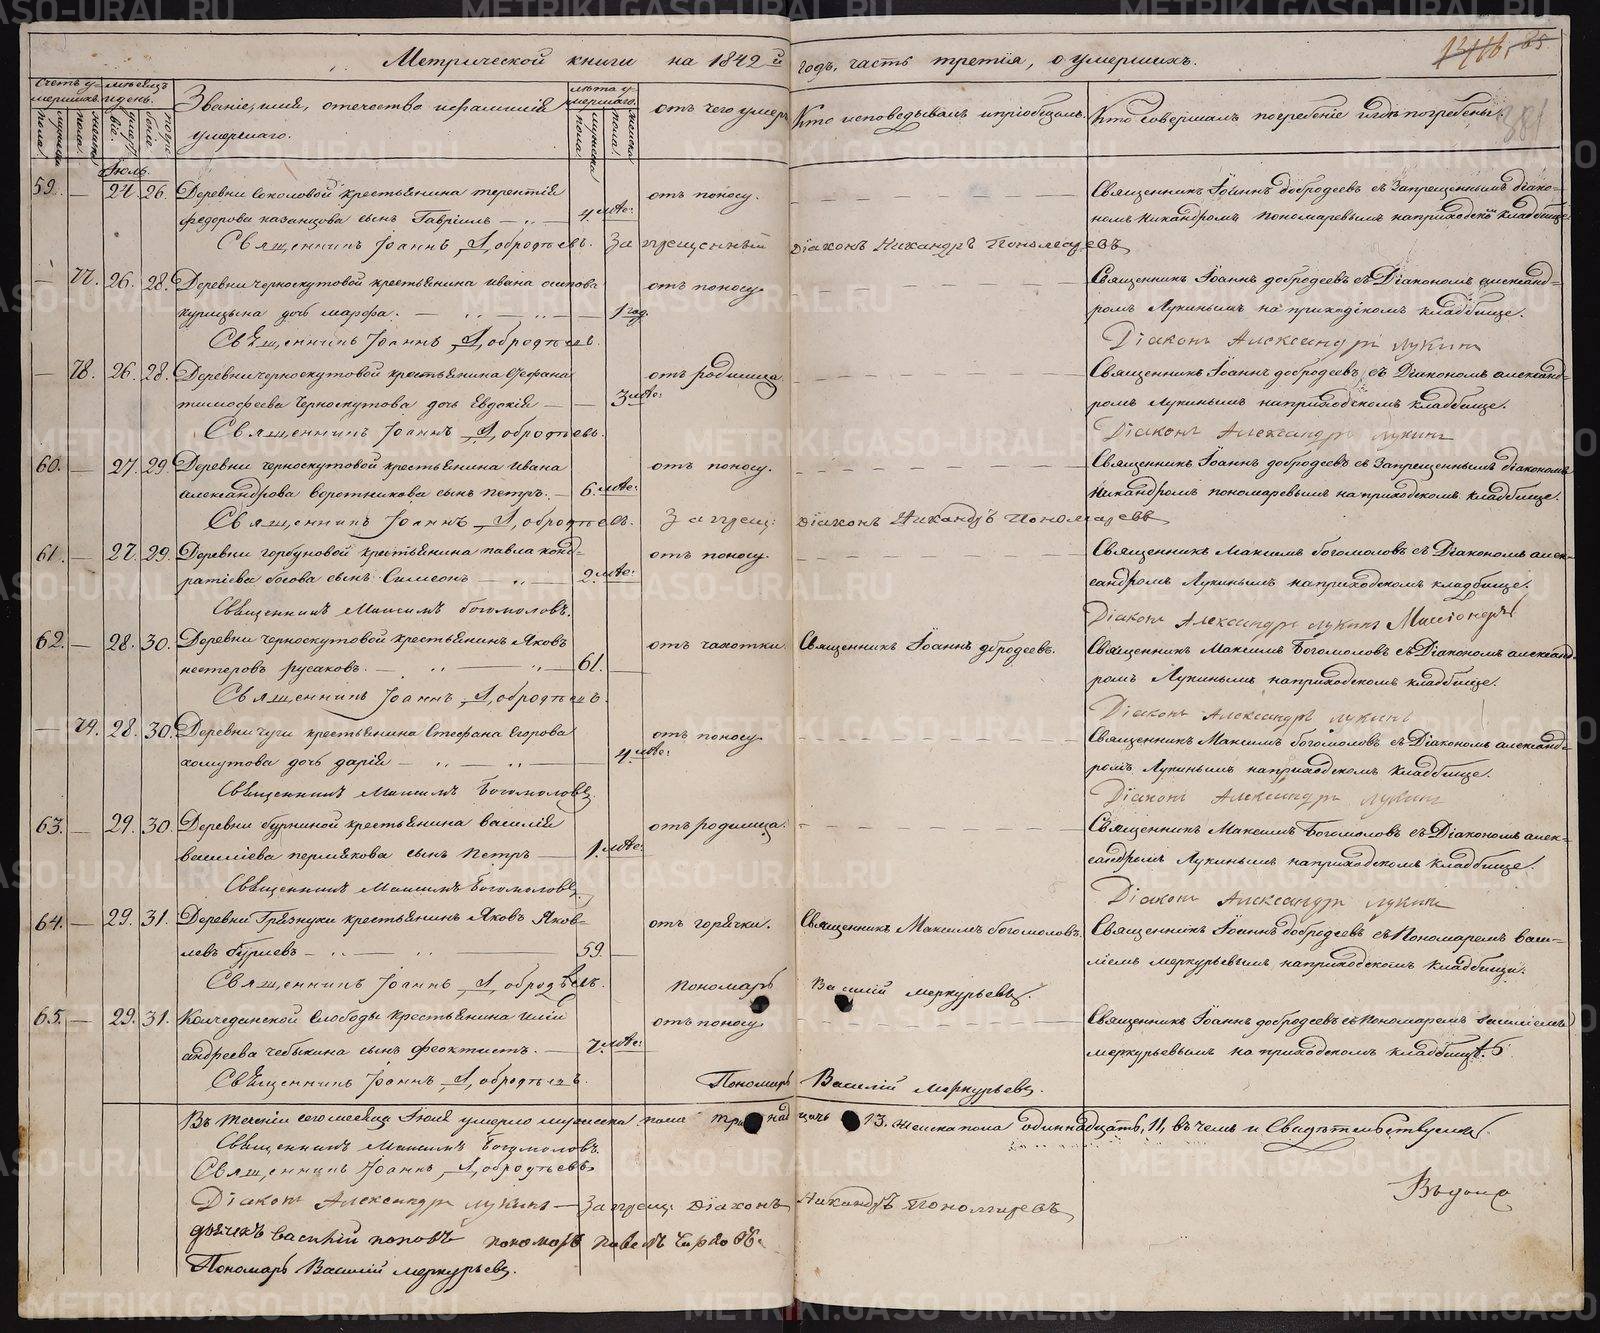 Метрической книги на 1842й годъ, часть третія, о умершихъ.
Счетъ умершихъ. мужеска пола. женска пола.
мѣсяцъ и день. смерти. погребеніе.
Званіе, имя, отечество и фамилія умершаго.
лѣта умершаго. мужеска пола. женска пола.
отъ чего умеръ
Кто исповѣдывалъ и пріобщалъ.
Кто совершалъ погребеніе и гдѣ погребены.
381
Іюль.
59. — 24. 26. Деревни Соколовой крестьянина терентія отъ поносу. Священникъ Іоаннъ добродеевъ съ Запрещеннымъ діако-
федорова казанцова сынъ Гавріилъ 4 лѣтъ: номъ Никандромъ пономаревымъ на приходскомъ кладбище.
Священникъ Іоаннъ Добродѣевъ. Запрещенный Діаконъ Никандръ Пономаревъ
— 77. 26. 28. Деревни черноскутовой крестьянина ивана осипова отъ поносу. Священникъ Іоаннъ добродеевъ съ Діакономъ александ-
курицына дочь марѳа. 1 год. ромъ Лукинымъ на приходскомъ кладбище.
Священникъ Іоаннъ Добродѣевъ. Діаконъ Александръ Лукинъ
— 78. 26. 28. Деревни черноскутовой крестьянина Стефана отъ родимца Священникъ Іоаннъ добродеевъ, съ Діакономъ александ-
тимофеева Черноскутова дочь Евдокія 3 лѣтъ: ромъ Лукинымъ на приходскомъ кладбище.
Священникъ Іоаннъ Добродѣевъ. Діаконъ Александръ Лукинъ
60. — 27. 29. Деревни черноскутовой крестьянина Ивана отъ поносу. Священникъ Іоаннъ добродеевъ съ Запрещеннымъ діакономъ
александрова воротникова сынъ петръ. 6 лѣтъ: Никандромъ пономаревымъ на приходскомъ кладбище.
Священникъ Іоаннъ Добродѣевъ. Запрещ: Діаконъ Никандръ Пономаревъ
61. — 27. 29. Деревни горбуновой крестьянина павла конд- отъ поносу. Священникъ Максимъ богомоловъ съ Діакономъ алек-
ратіева босова сынъ Симеонъ 2 лѣтъ: сандромъ Лукинымъ на приходскомъ кладбище.
Священникъ Максимъ богомоловъ. Діаконъ Александръ Лукинъ
62. — 28. 30. Деревни черноскутовой крестьянинъ Яковъ отъ чахотки Священникъ Іоаннъ добродеевъ. Священникъ Максимъ Богомоловъ съ Діакономъ александ-
нестеровъ русаковъ. 61. ромъ Лукинымъ на приходскомъ кладбище.
Священникъ Іоаннъ Добродѣевъ. Діаконъ Александръ Лукинъ
— 79. 28. 30. Деревни чуги крестьянина Стефана Егорова отъ поносу. Священникъ Максимъ богомоловъ съ Діакономъ александ-
хомутова дочь дарія 4 лѣтъ: ромъ Лукинымъ на приходскомъ кладбище.
Священникъ Максимъ Богомоловъ. Діаконъ Александръ Лукинъ
63. — 29. 30. Деревни бурниной крестьянина василія отъ родимца. Священникъ Максимъ Богомоловъ съ Діакономъ алек-
василіева пермякова сынъ Петръ 1 лѣтъ: сандромъ Лукинымъ на приходскомъ кладбище.
Священникъ Максимъ Богомоловъ. Діаконъ Александръ Лукинъ
64. — 29. 31. Деревни Грязнухи крестьянинъ Яковъ Яков- отъ горячки. Священникъ Максимъ богомоловъ. Священникъ Іоаннъ добродеевъ съ Пономаремъ васи-
левъ буриевъ 59. ліемъ меркурьевымъ на приходскомъ кладбище.
Священникъ Іоаннъ Добродѣевъ. Пономарь Василій меркурьевъ.
65. — 29. 31. Колчеданской Слободы крестьянина иліи отъ поносу Священникъ Іоаннъ добродеевъ съ пономаремъ василіемъ
андреева чебыкина сынъ феоктистъ. 7 лѣтъ: меркурьевымъ на приходскомъ кладбище.
Священникъ Іоаннъ Добродѣевъ. Пономарь Василій меркурьевъ.
Въ теченіи сего месяца Іюля умерло мужеска пола тринадцать 13. женска пола одиннадцать, 11, въ чемъ и Свидѣтельствуемъ.
Священникъ Максимъ Богомоловъ.
Священникъ Іоаннъ Добродѣевъ
Діаконъ Александръ Лукинъ — Запрещ: Діаконъ Никандръ Пономаревъ
дьячекъ василій поповъ пономарь павелъ
Пономарь Василій меркурьевъ.
METRIKI.GASO-URAL.RU